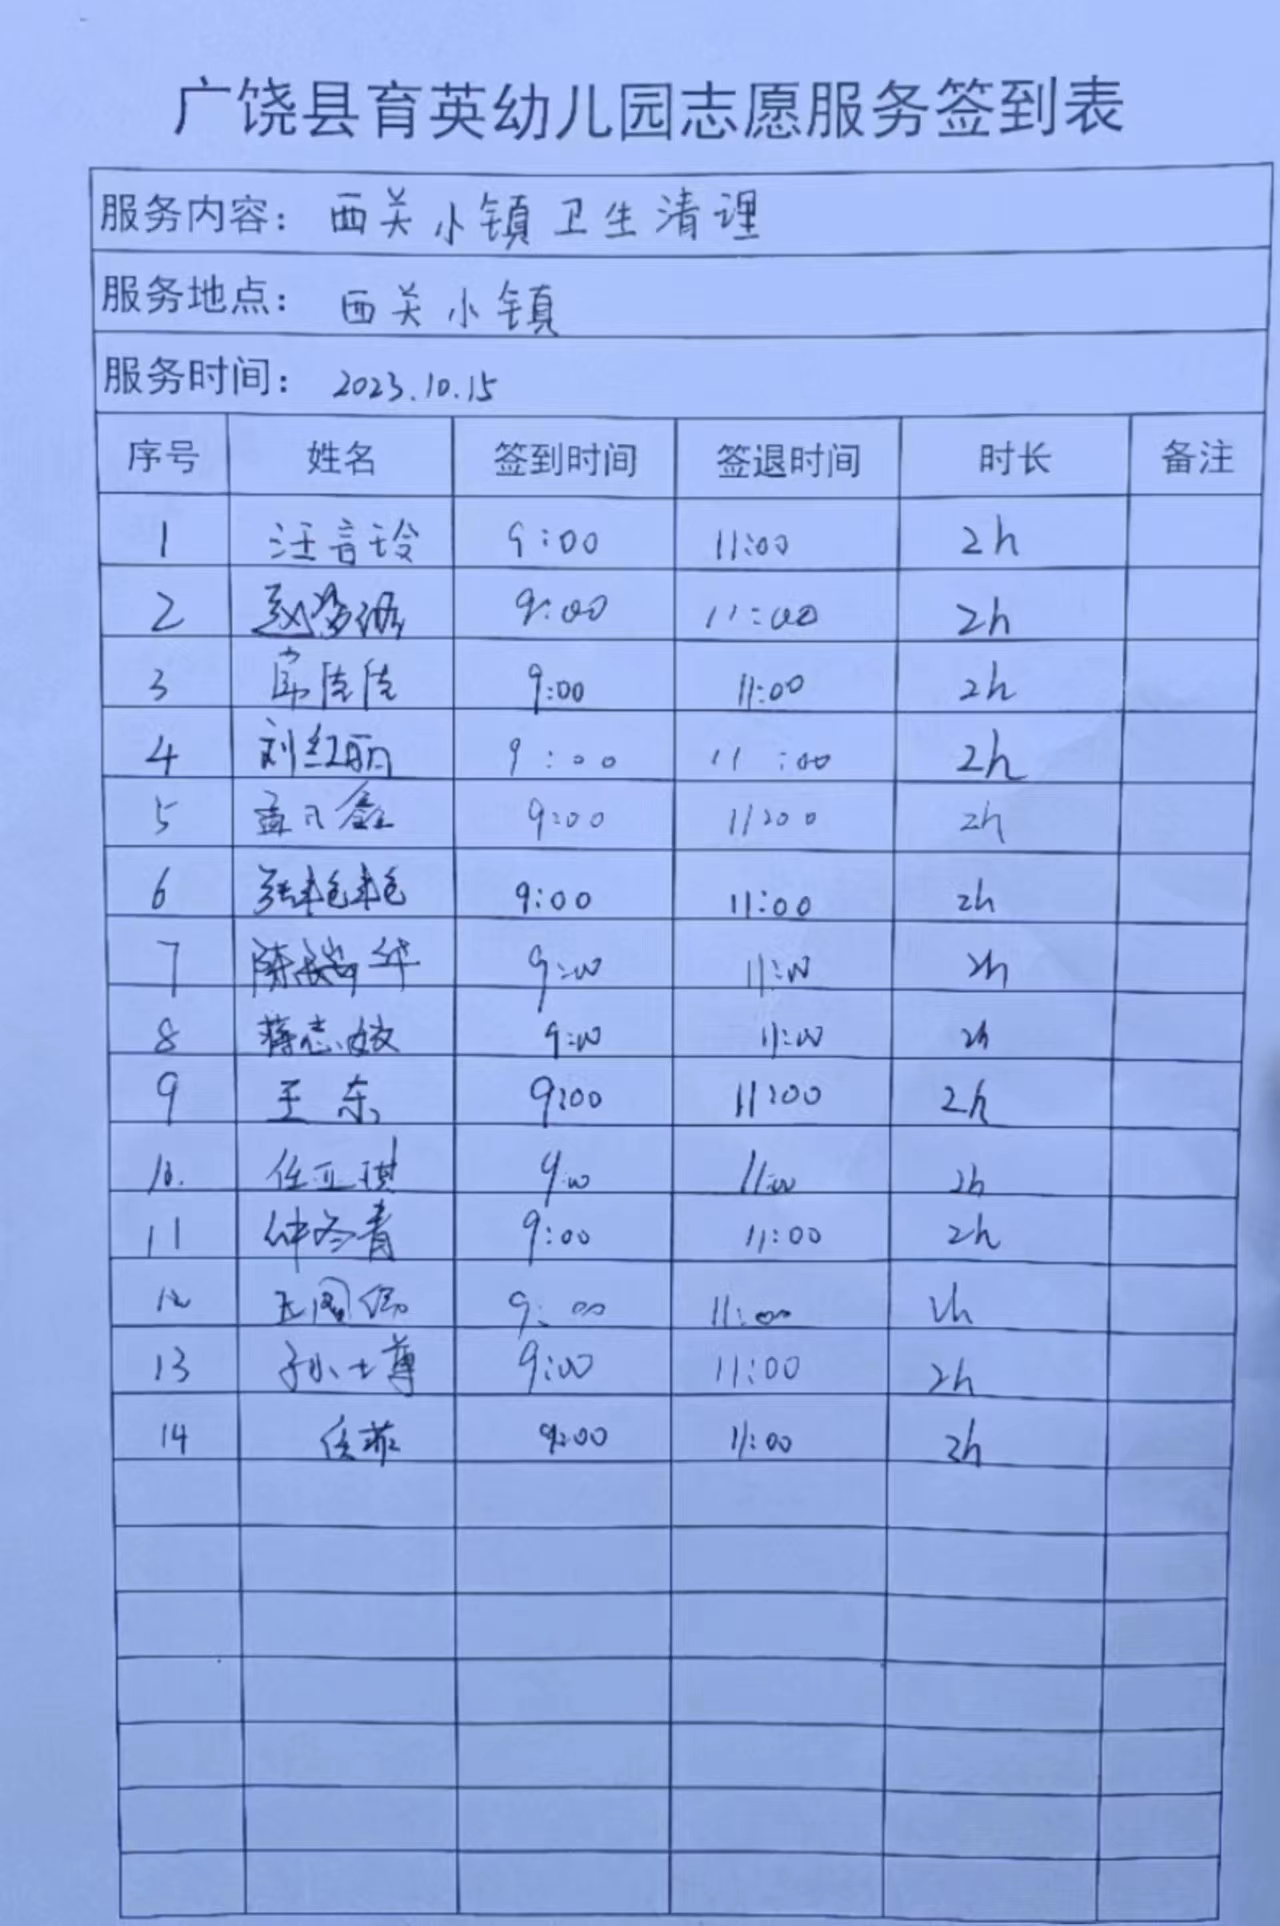 广饶县育英幼儿园志愿服务签到表
服务内容：西关小镇卫生清理
服务地点：西关小镇
服务时间：2023.10.15
序号 姓名 签到时间 签退时间 时长 备注
1 汪音玲 9:00 11:00 2h
2 9:00 11:00 2h
3 9:00 11:00 2h
4 刘红丽 9:00 11:00 2h
5 孟凡鑫 9:00 11:00 2h
6 张艳艳 9:00 11:00 2h
7 陈瑞华 9:00 11:00 2h
8 蒋志敏 9:00 11:00 2h
9 王东 9:00 11:00 2h
10. 任亚琪 9:00 11:00 2h
11 仲冬青 9:00 11:00 2h
12 9:00 11:00 2h
13 9:00 11:00 2h
14 任菲 9:00 11:00 2h